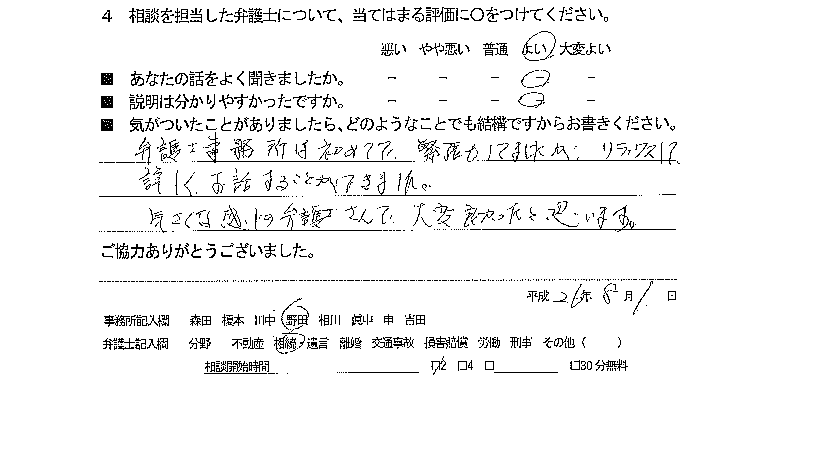 4 相談を担当した弁護士について、当てはまる評価に〇をつけてください。
悪い やや悪い 普通 よい 大変よい
■ あなたの話をよく聞きましたか。 － － － － －
■ 説明は分かりやすかったですか。 － － － － －
■ 気がついたことがありましたら、どのようなことでも結構ですからお書きください。
弁護士事務所は初めてで、緊張していましたが、リラックスして
詳しくお話することができました。
気さくな感じの弁護士さんで、大変良かったと思います。
ご協力ありがとうございました。
平成 26年 8月 1日
事務所記入欄 森田 榎本 川中 野田 相川 眞中 申 吉田
弁護士記入欄 分野 不動産 相続・遺言 離婚 交通事故 損害賠償 労働 刑事 その他（ ）
相談開始時間 □2 □4 □ □30分無料